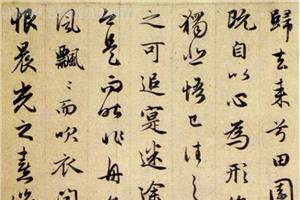 歸去来兮田園
既自以心為形
獨悲悟已往之
之可追寔迷途
今是而昨非舟
風飄〻而吹衣問
恨晨光之熹